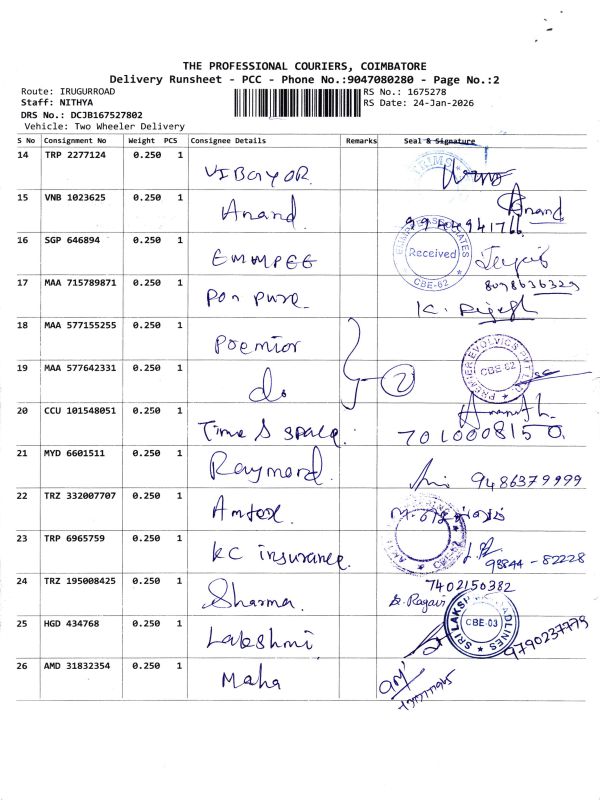 THE PROFESSIONAL COURIERS, COIMBATORE
Delivery Runsheet - PCC - Phone No.:9047080280 - Page No.:2
Route: IRUGURROAD
Staff: NITHYA
DRS No.: DCJB167527802
Vehicle: Two Wheeler Delivery
RS No.: 1675278
RS Date: 24-Jan-2026
S No Consignment No Weight PCS Consignee Details Remarks Seal & Signature
14 TRP 2277124 0.250 1 VIBGYOR
15 VNB 1023625 0.250 1 Anand Anand
16 SGP 646894 0.250 1 EMMPEE Received CBE-62
17 MAA 715789871 0.250 1 Pon pure 8098636329
18 MAA 577155255 0.250 1 Premier
19 MAA 577642331 0.250 1 do 2 PREMIER EVOLVICS PVT LTD CBE 62
20 CCU 101548051 0.250 1 Time & space 7010008150
21 MYD 6601511 0.250 1 Raymond 9486379999
22 TRZ 332007707 0.250 1 Amtex
23 TRP 6965759 0.250 1 KC insurance CBE-62 98844-82228
24 TRZ 195008425 0.250 1 Sharma 7402150382
25 HGD 434768 0.250 1 Lakshmi CBE-03 9790237779
26 AMD 31832354 0.250 1 Maha